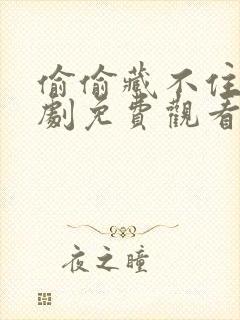 偷偷藏不住
劇免費觀看
夜之瞳